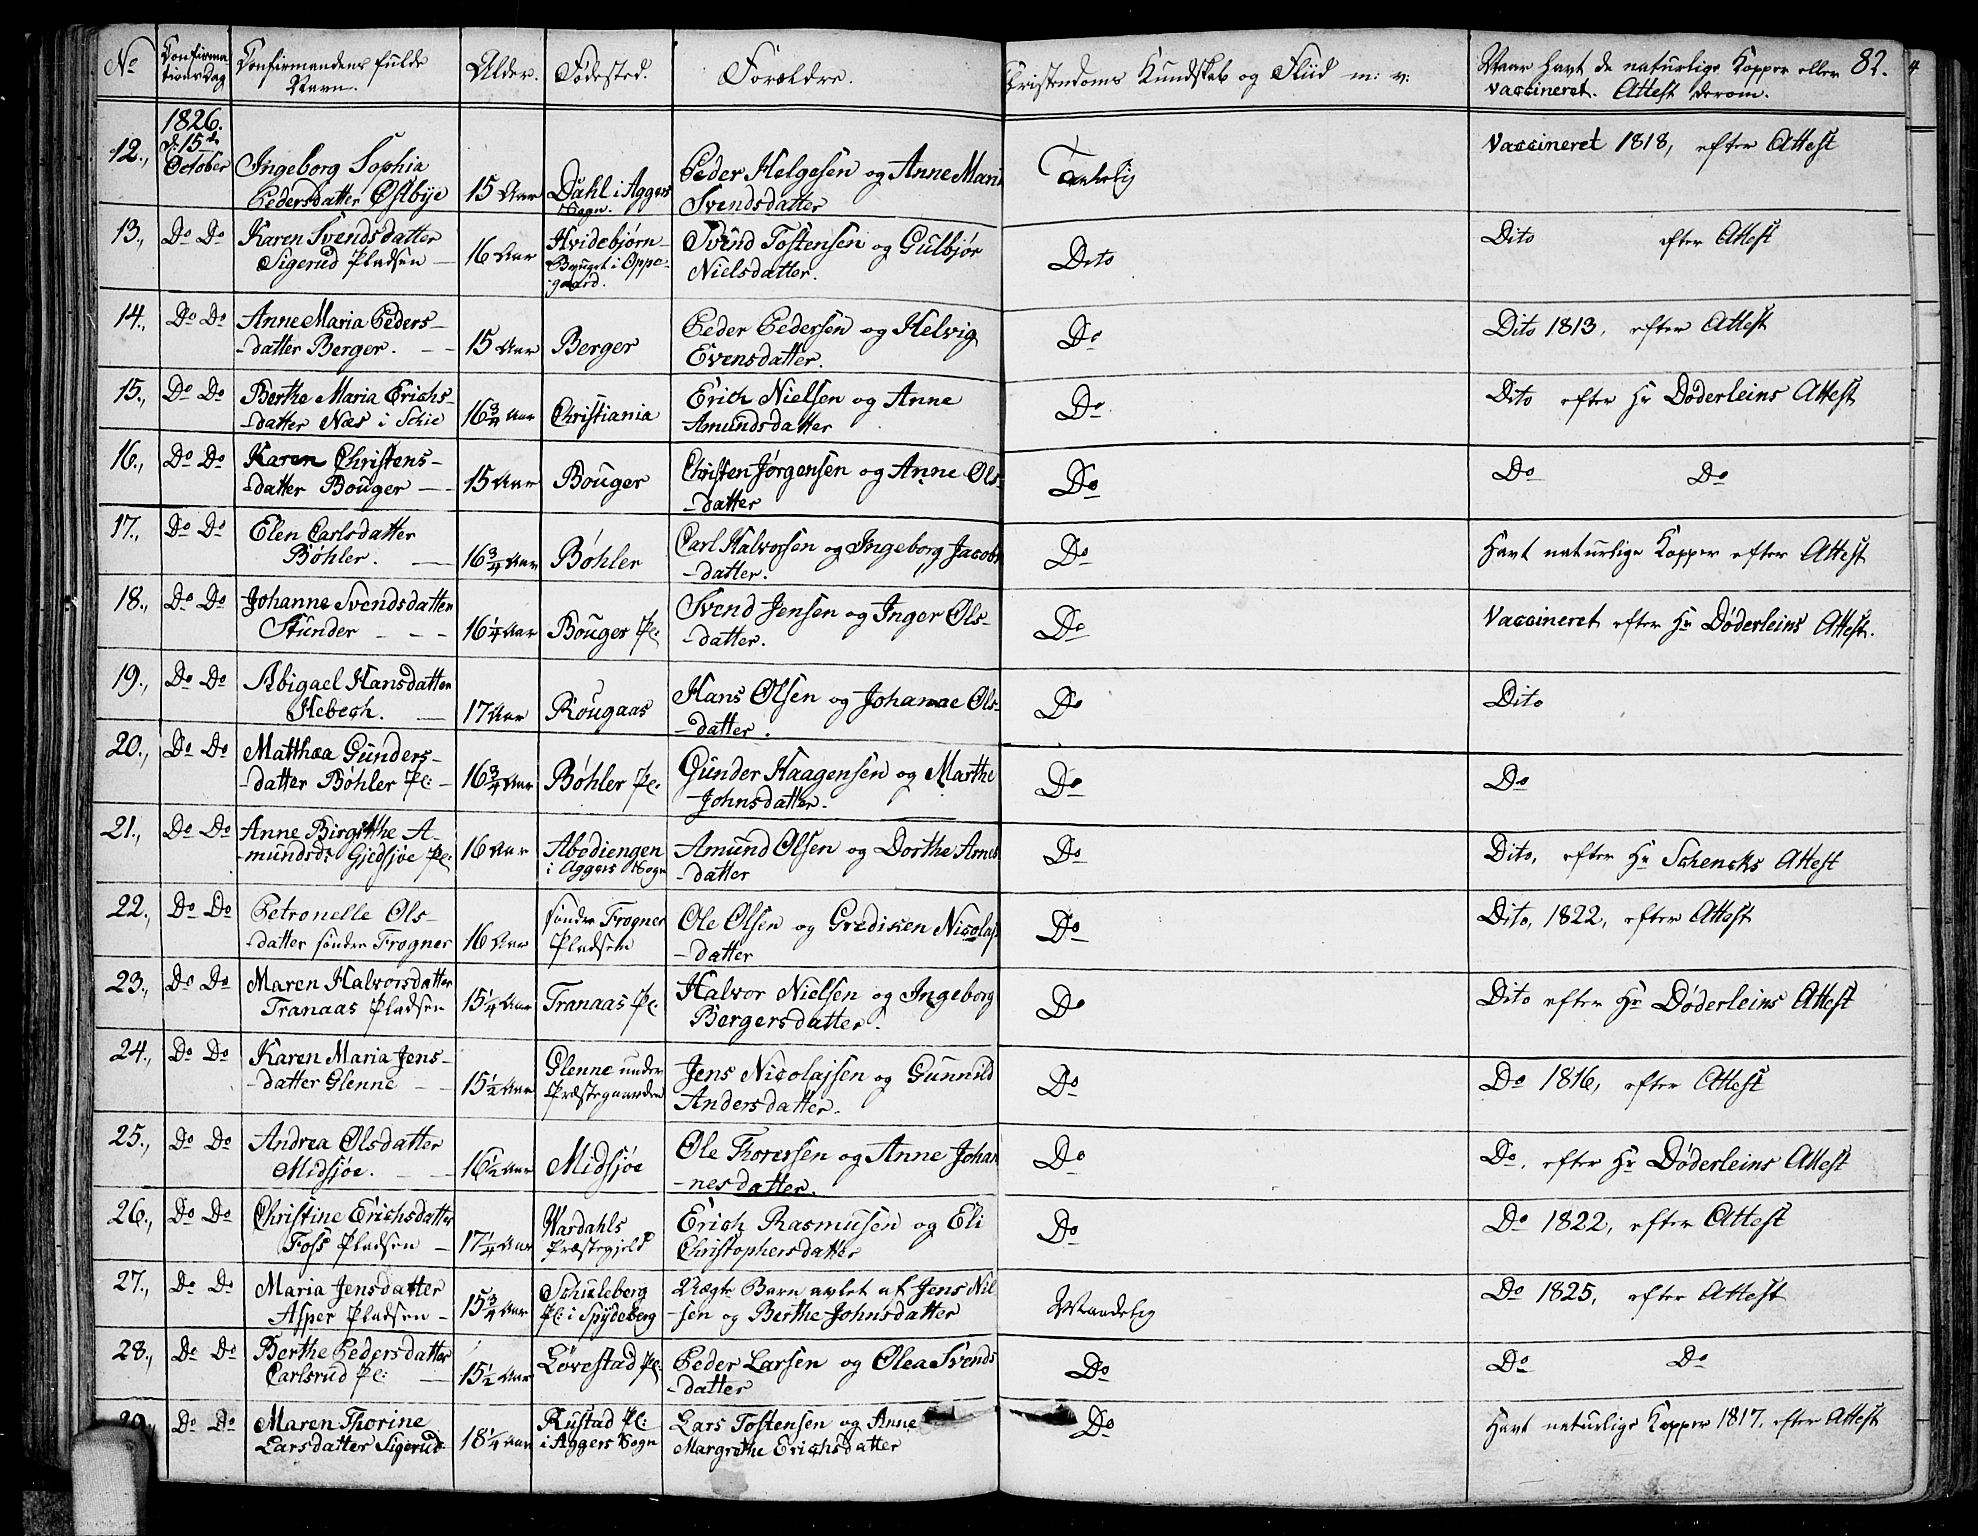 No Confirma Confirmandens fulde Alder. Fødested. Forældre. Christendoms Kundskab og Fliid m: v: Naar havt de naturlige Kopper eller 82.
tions Dag Navn. vaccineret. Attest derom.
1826.
12., d: 15de Ingeborg Sophia 15 Aar Dahl i Aggers Peder Helgesen og Anne Maria Taalelig Vaccineret 1818, efter Attest
October Pedersdatter Østbye Sogn. Svendsdatter
13., Do Do Karen Svendsdatter 16 Aar Hvidebjørn- Svend Tostensen og Gulbjør Dito Dito efter Attest
Sigerud Pladsen - Bruget i Oppe- Nielsdatter.
gaard.
14., Do Do Anne Maria Peders- 15 Aar Berger Peder Pedersen og Helvig Do Dito 1813, efter Attest
-datter Berger. - - Evensdatter.
15., Do Do Berthe Maria Erichs- 16 3/4 Aar Christiania Erich Nielsen og Anne Do Dito efter Hr Døderleins Attest
-datter Næs i Schie Amundsdatter
16., Do Do Karen Christens- 15 Aar Bouger Christen Jørgensen og Anne Ols- Do Do Do
-datter Bouger - - -datter
17., Do Do Elen Carlsdatter 16 3/4 Aar Bøhler Carl Halvorsen og Ingeborg Jacobs Do Havt naturlige Kopper efter Attest
Bøhler. - -datter.
18., Do Do Johanne Svendsdatter 16 1/4 Aar Bouger Pl: Svend Jensen og Inger Ols- Do Vaccineret efter Hr Døderleins Attest.
Stunder - - - -datter.
19., Do Do Abigael Hansdatter 17 Aar Rougaas Hans Olsen og Johanne Ols- Do Dito
Hebech. - -datter.
20., Do Do Matthæa Gunders- 16 3/4 Aar Bøhler Pl: Gunder Haagensen og Marthe Do Do
-datter Bøhler Pl: - Johnsdatter.
21., Do Do Anne Birgitthe A- 16 Aar Abediengen Amund Olsen og Dorthe Arnes Do Dito, efter Hr Schencks Attest
-mundsd: Gjedsjøe Pl: i Aggers Sogn -datter
22., Do Do Petronelle Ols- 16 Aar søndre Frogner Ole Olsen og Gredisken Nicolajs Do Dito, 1822, efter Attest
-datter søndre Frogner Pladsen -datter
23., Do Do Maren Halvorsdatter 15 1/4 Aar Tranaas Pl: Halvor Nielsen og Ingeborg Do Dito efter Hr Døderleins Attest
Tranaas Pladsen Bergersdatter.
24., Do Do Karen Maria Jens- 15 1/2 Aar Glenne under Jens Nicolajsen og Gunnild Do Do 1816, efter Attest
-datter Glenne - - Præstegaarden Andersdatter.
25., Do Do Andrea Olsdatter 16 1/2 Aar Midsjøe Ole Thoresen og Anne Johan Do Do, efter Hr Døderleins Attest
Midsjøe. - - -nesdatter.
26., Do Do Christine Erichsdatter 17 1/4 Aar Wardahls Erich Rasmusen og Eli Do Do 1822, efter Attest
Foss Pladsen - Præstegjeld Christophersdatter
27., Do Do Maria Jensdatter 15 3/4 Aar Schuleberg Uægte Barn avlet af Jens Nil Maadelig Do 1825, efter Attest
Asper Pladsen - Pl: i Spydeberg -sen og Berthe Johnsdatter
28., Do Do Berthe Pedersdatter 15 1/2 Aar Løvestad Pl: Peder Larsen og Olea Svends Do Do Do
Carlsrud Pl: - -datter
29 Do Do Maren Thorine 18 1/4 Aar Rustad Pl: Lars Tostensen og Anne Do Havt naturlige Kopper 1817, efter Attest
Larsdatter Sigerud i Aggers Sogn Margrethe Erichsdatter